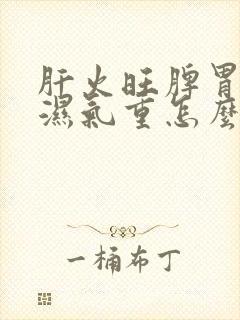 肝火旺脾胃
濕氣重怎麼
一桶布丁